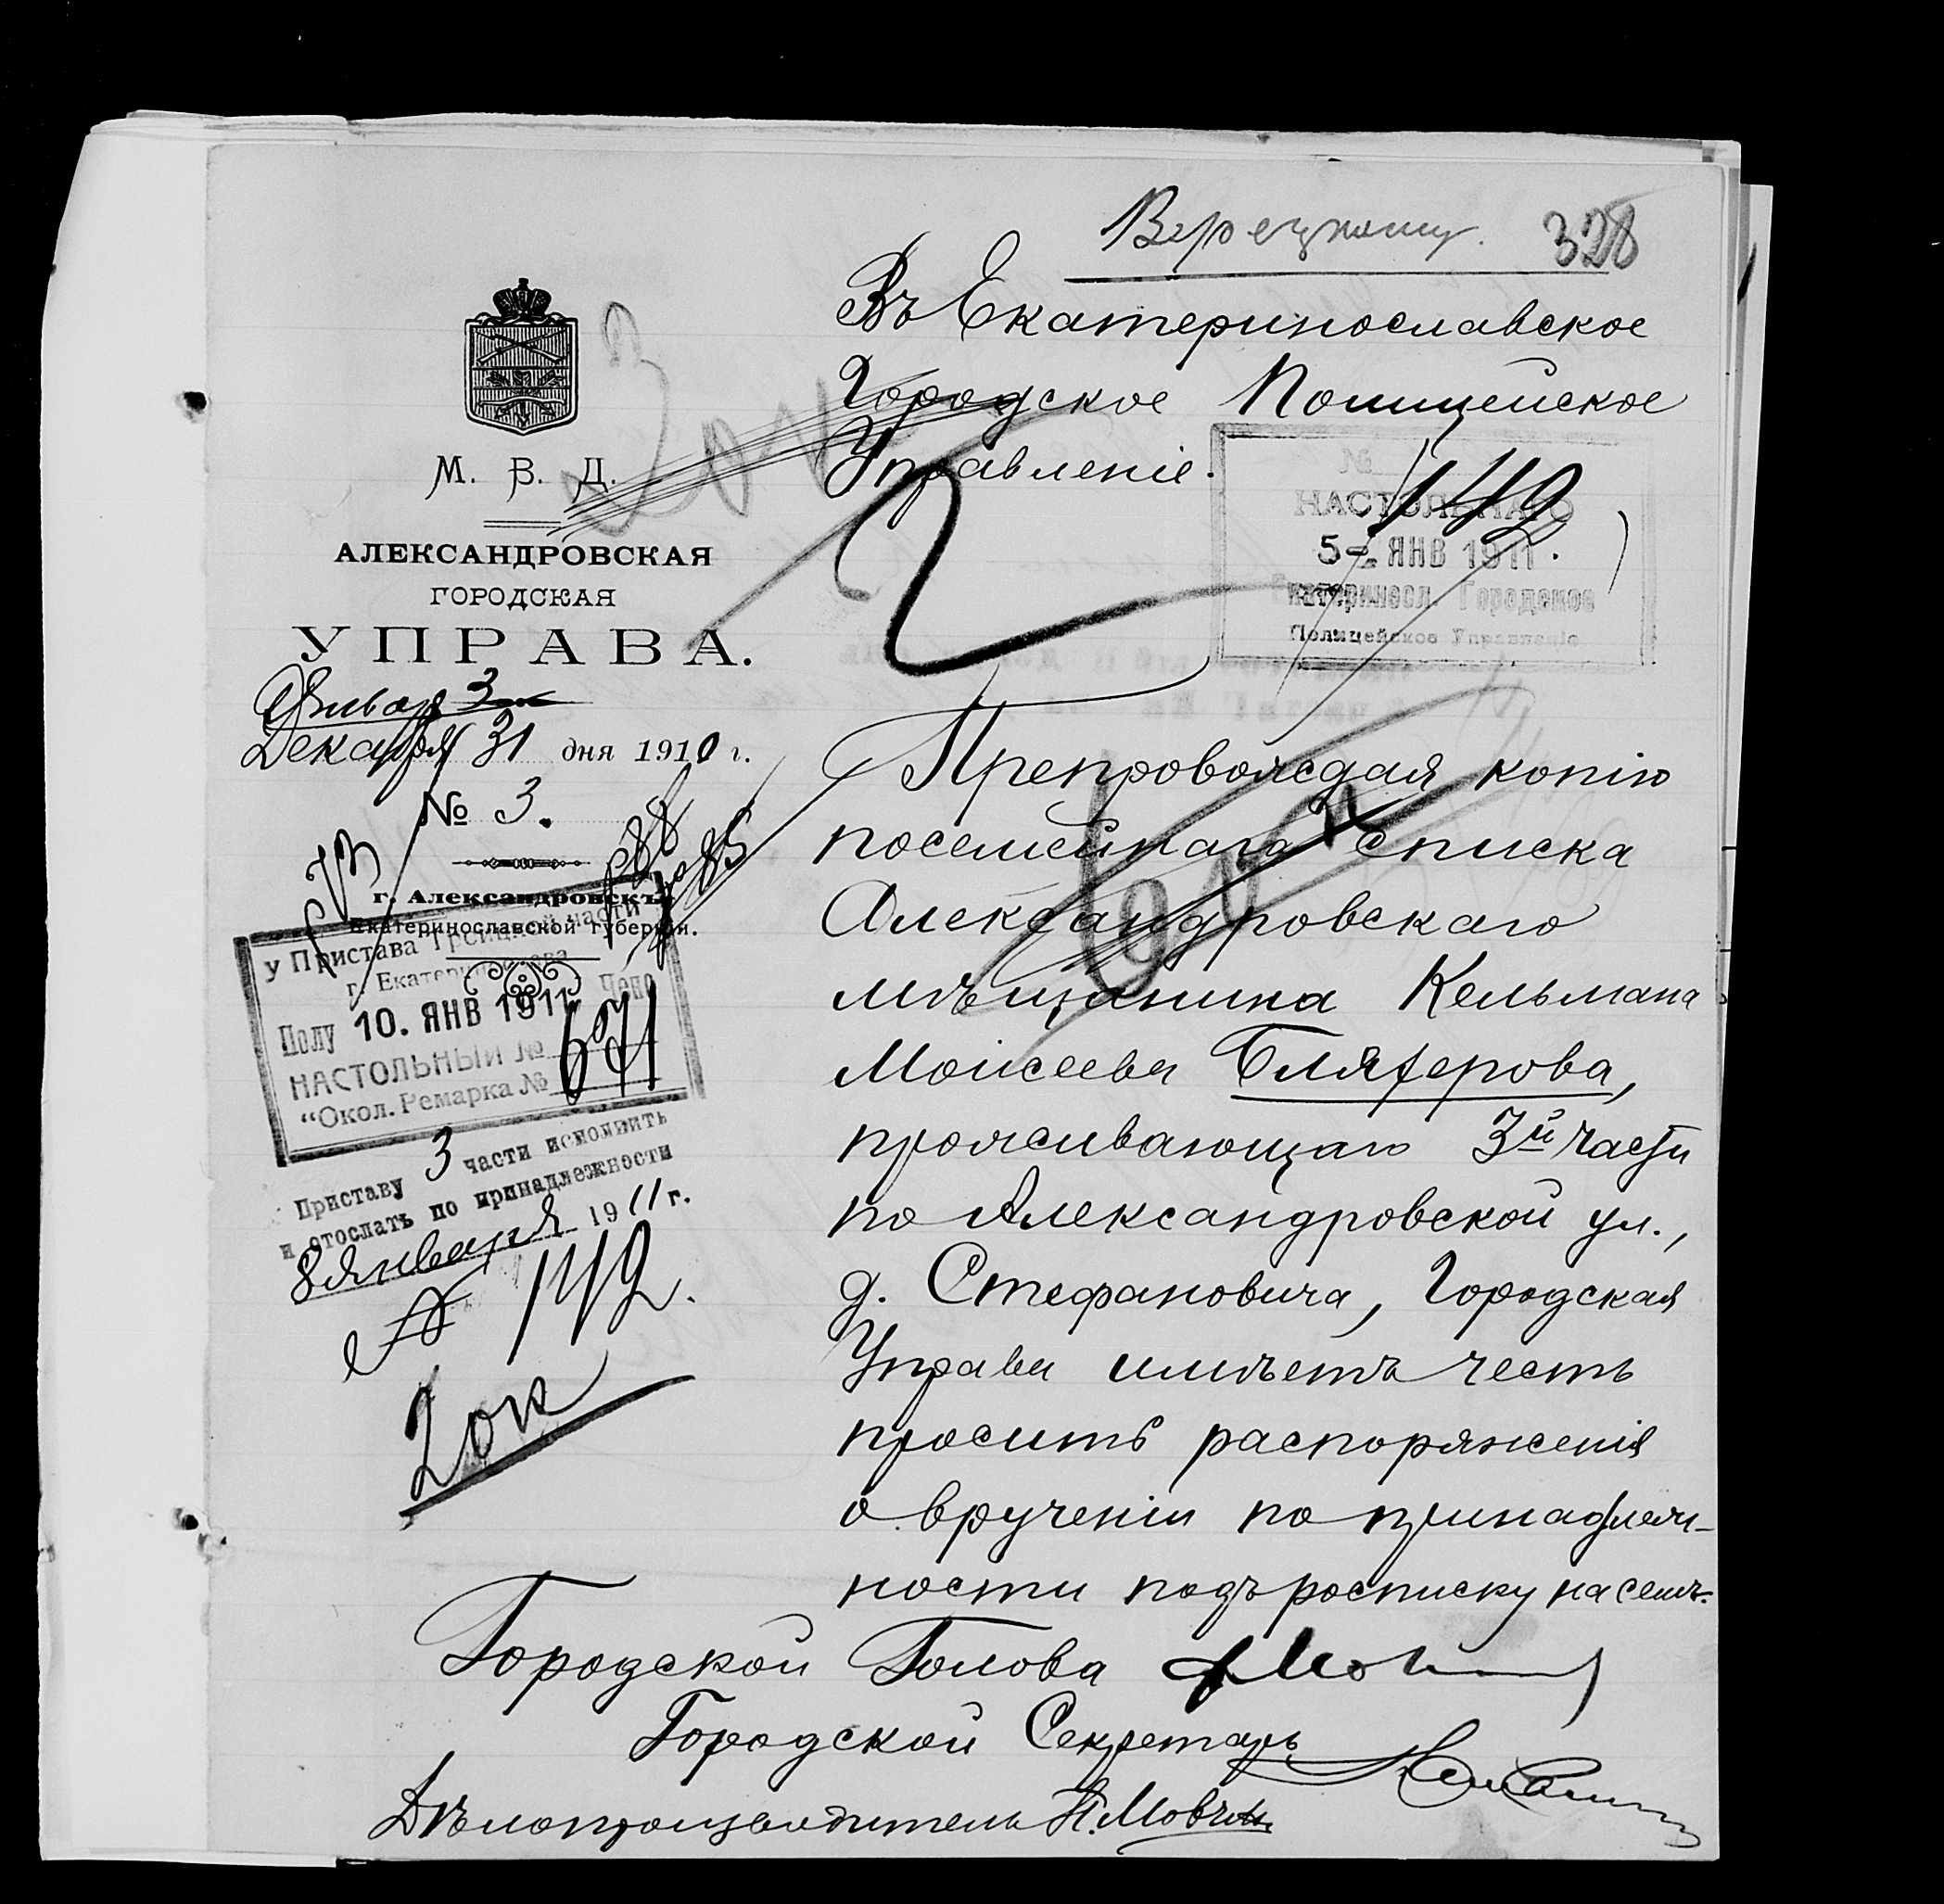 328
Въ Екатеринославское
Городское Полицейское
Управленіе.
М. В. Д.
АЛЕКСАНДРОВСКАЯ
ГОРОДСКАЯ
УПРАВА.
Января 3
Декабря 31 дня 1910 г.
№ 3.
г. Александровскъ,
Екатеринославской губерніи.
№ 142
НАСТОЛЬНАГО
5 ЯНВ 1911
Екатеринosл. Городское
Полицейское Управленіе
у Пристава Троицкой части
г. Екатеринослава
Полу 10. ЯНВ 1911 чено
НАСТОЛЬНЫЙ №
“Окол. Ремарка №
Приставу 3 части исполнить
и отослать по принадлежности
8 января 1911 г.
№ 142.
2 ок
Препровождая копію
посемейнаго списка
Александровскаго
мѣщанина Кельмана
Моисеева Бляферова,
проживающаго 3й части
по Александровской ул.,
д. Стефановича, Городская
Управа имѣетъ честь
просить распоряженія
о врученіи по принадлеж-
ности подъ росписку на семъ.
Городской Голова
Городской Секретарь
Дѣлопроизводитель Н. Мовчан